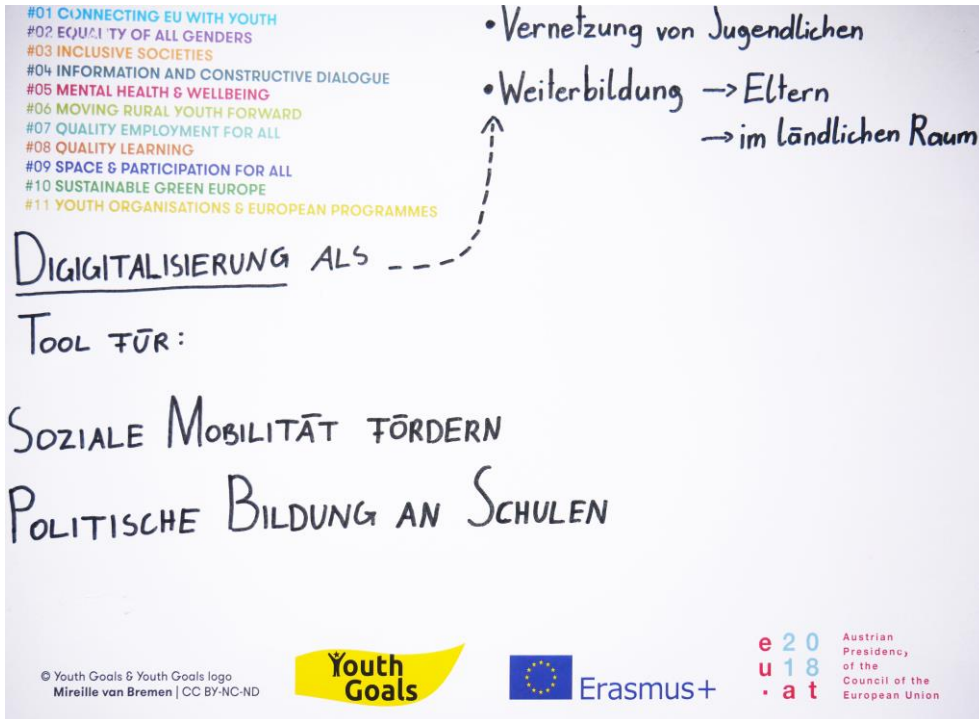 #01 CONNECTING EU WITH YOUTH
#02 EQUALITY OF ALL GENDERS
#03 INCLUSIVE SOCIETIES
#04 INFORMATION AND CONSTRUCTIVE DIALOGUE
#05 MENTAL HEALTH & WELLBEING
#06 MOVING RURAL YOUTH FORWARD
#07 QUALITY EMPLOYMENT FOR ALL
#08 QUALITY LEARNING
#09 SPACE & PARTICIPATION FOR ALL
#10 SUSTAINABLE GREEN EUROPE
#11 YOUTH ORGANISATIONS & EUROPEAN PROGRAMMES
• Vernetzung von Jugendlichen
• Weiterbildung → Eltern
→ im ländlichen Raum
DIGIGITALISIERUNG ALS
TOOL FÜR:
SOZIALE MOBILITÄT FÖRDERN
POLITISCHE BILDUNG AN SCHULEN
© Youth Goals & Youth Goals logo
Mireille van Bremen | CC BY-NC-ND
Youth
Goals
Erasmus+
e 2 0
u 1 8
. a t
Austrian
Presidency
of the
Council of the
European Union